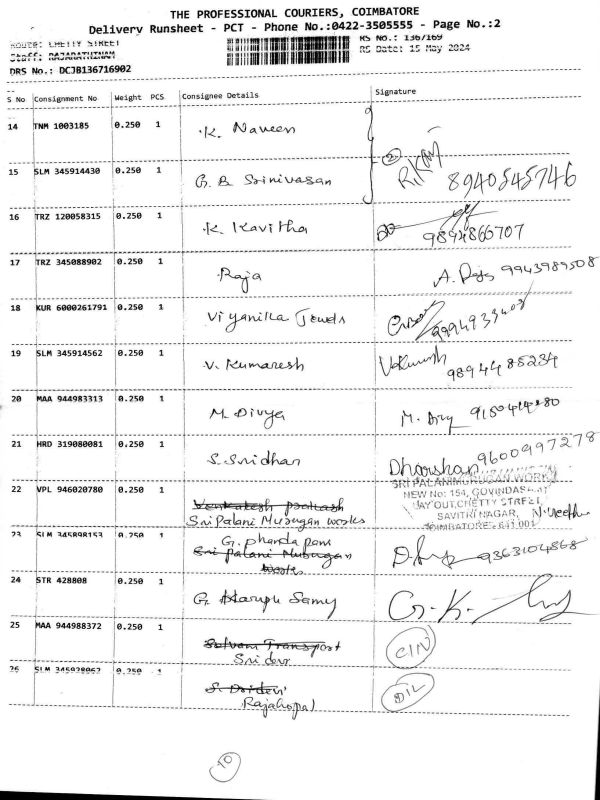 THE PROFESSIONAL COURIERS, COIMBATORE
Delivery Runsheet - PCT - Phone No.:0422-3505555 - Page No.:2
Route: CHETTY STREET RS No.: 1367169
Staff: RAJARATHINAM RS Date: 15 May 2024
DRS No.: DCJB136716902
S No Consignment No Weight PCS Consignee Details Signature
14 TNM 1003185 0.250 1 K. Naveen
15 SLM 345914430 0.250 1 G. B. Srinivasan 2 8940545746
16 TRZ 120058315 0.250 1 K. Kavitha 9894866707
17 TRZ 345088902 0.250 1 Raja A. Raja 9943989508
18 KUR 6000261791 0.250 1 Viyanilla Jewels
19 SLM 345914562 0.250 1 V. Kumaresh 9894485234
20 MAA 944983313 0.250 1 M. Divya
21 HRD 319080081 0.250 1 S. Sridhar Dharshan 9600997278
22 VPL 946020780 0.250 1 Venkatesh prakash
Sri Palani Murugan works
SRI PALANIMURUGAN WORK
NEW No: 154, GOVINDASAMY
LAY OUT, CHETTY STREET
SAVITRI NAGAR,
COIMBATORE - 641 001
23 SLM 345898153 0.250 1 G. phandapani
Sri Palani Murugan
works 9363104868
24 STR 428808 0.250 1 G. Karupu Samy G. K.
25 MAA 944988372 0.250 1 Selvam Transport
Sridevi CIN
26 SLM 345928062 0.250 1 S. Sridevi
Rajahopal DIL
10